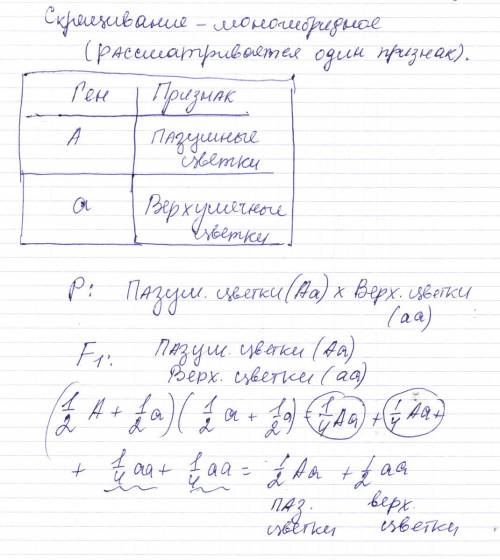 Скрещивание – моногибридное
(рассматривается один признак).
Ген | Признак
А | пазушные цветки
а | Верхушечные цветки
Р: Пазуш. цветки (Аа) х Верх. цветки
(аа)
F1: Пазуш. цветки (Аа)
Верх. цветки (аа)
(1/2 А + 1/2 а) (1/2 а + 1/2 а) = 1/4 Аа + 1/4 Аа +
+ 1/4 аа + 1/4 аа = 1/2 Аа + 1/2 аа
паз. верх.
цветки цветки